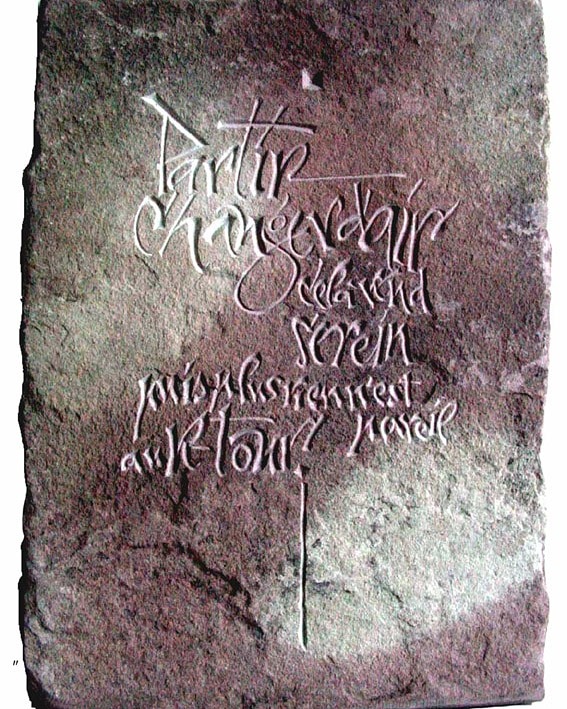 Partir
changer d'air
cela rend
serein
puis plus rien n'est
pareil
au Retour
"